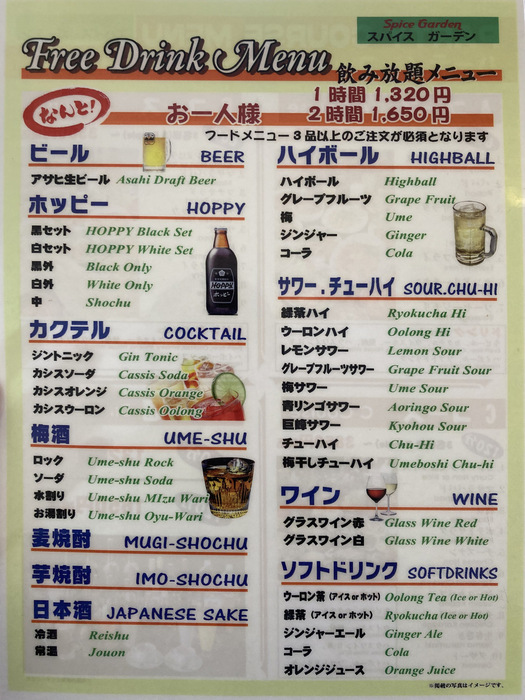 Spice Garden
スパイス ガーデン
Free Drink Menu
飲み放題メニュー
なんと!
お一人様
1時間 1,320円
2時間 1,650円
フードメニュー3品以上のご注文が必須となります
ビール BEER
アサヒ生ビール Asahi Draft Beer
ホッピー HOPPY
黒セット HOPPY Black Set
白セット HOPPY White Set
黒外 Black Only
白外 White Only
中 Shochu
HOPPY
ホッピー
カクテル COCKTAIL
ジントニック Gin Tonic
カシスソーダ Cassis Soda
カシスオレンジ Cassis Orange
カシスウーロン Cassis Oolong
梅酒 UME-SHU
ロック Ume-shu Rock
ソーダ Ume-shu Soda
水割り Ume-shu MIzu Wari
お湯割り Ume-shu Oyu-Wari
麦焼酎 MUGI-SHOCHU
芋焼酎 IMO-SHOCHU
日本酒 JAPANESE SAKE
冷酒 Reishu
常温 Jouon
ハイボール HIGHBALL
ハイボール Highball
グレープフルーツ Grape Fruit
梅 Ume
ジンジャー Ginger
コーラ Cola
サワー.チューハイ SOUR.CHU-HI
緑茶ハイ Ryokucha Hi
ウーロンハイ Oolong Hi
レモンサワー Lemon Sour
グレープフルーツサワー Grape Fruit Sour
梅サワー Ume Sour
青リンゴサワー Aoringo Sour
巨峰サワー Kyohou Sour
チューハイ Chu-Hi
梅干しチューハイ Umeboshi Chu-hi
ワイン WINE
グラスワイン赤 Glass Wine Red
グラスワイン白 Glass Wine White
ソフトドリンク SOFTDRINKS
ウーロン茶(アイス or ホット) Oolong Tea (Ice or Hot)
緑茶(アイス or ホット) Ryokucha (Ice or Hot)
ジンジャーエール Ginger Ale
コーラ Cola
オレンジジュース Orange Juice
※掲載の写真はイメージです。